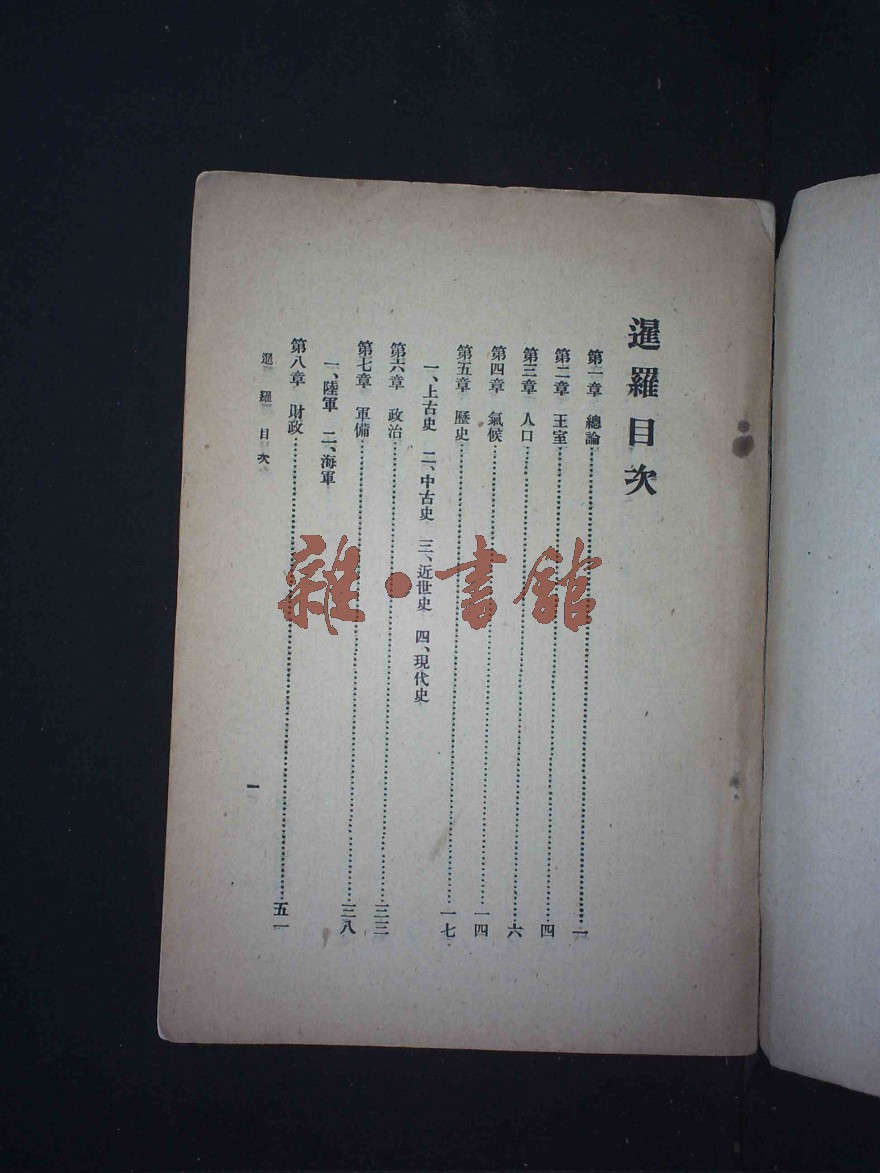 暹羅目次
第一章　總論……一
第二章　王室……四
第三章　人口……六
第四章　氣候……一四
第五章　歷史……一七
一、上古史　二、中古史　三、近世史　四、現代史
第六章　政治……三三
第七章　軍備……三八
一、陸軍　二、海軍
第八章　財政……五一
暹羅　目次
一
雜·書館